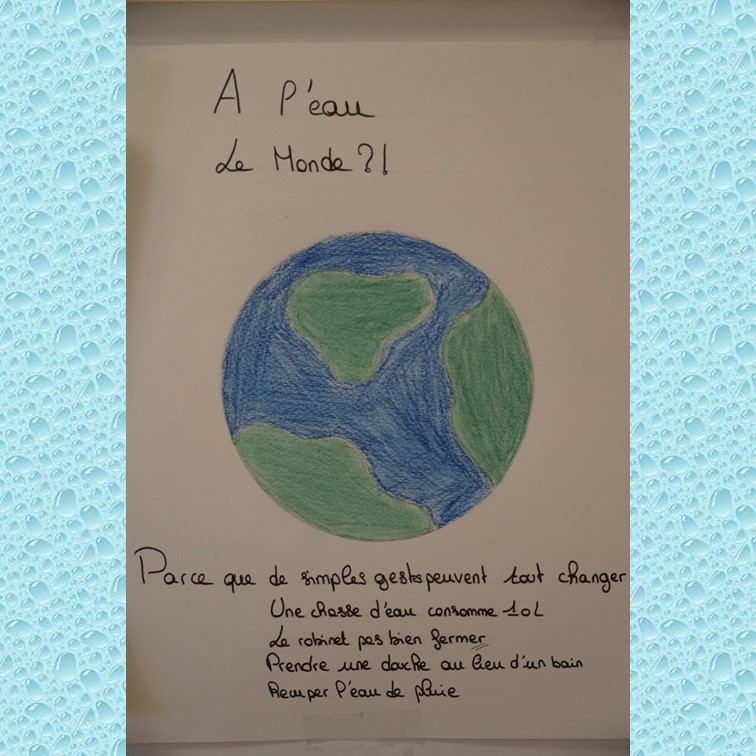 A l'eau
Le Monde ?!
Parce que de simples gestes peuvent tout changer
Une chasse d'eau consomme 10L
Le robinet pas bien fermer
Prendre une douche au lieu d'un bain
l'eau de pluie